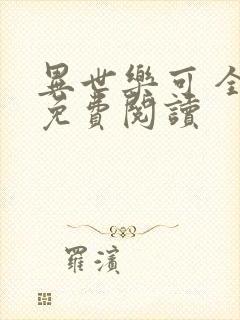 異世樂可 全
免費閱讀
羅濱